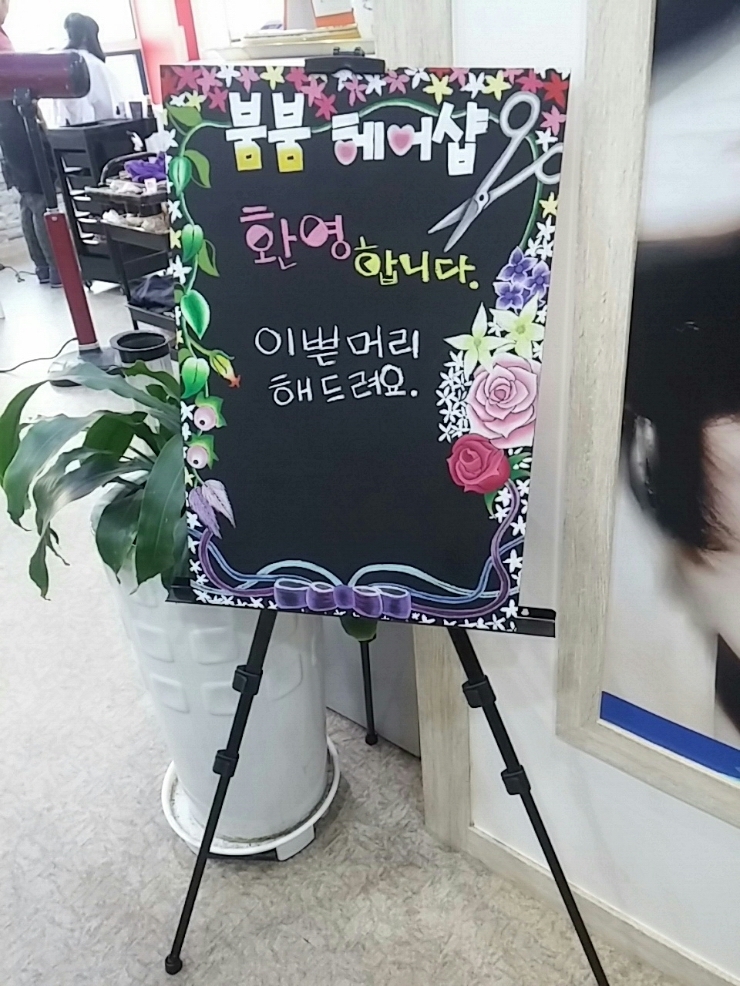 붐붐 헤어샵
환영합니다.
이쁜머리
해드려요.